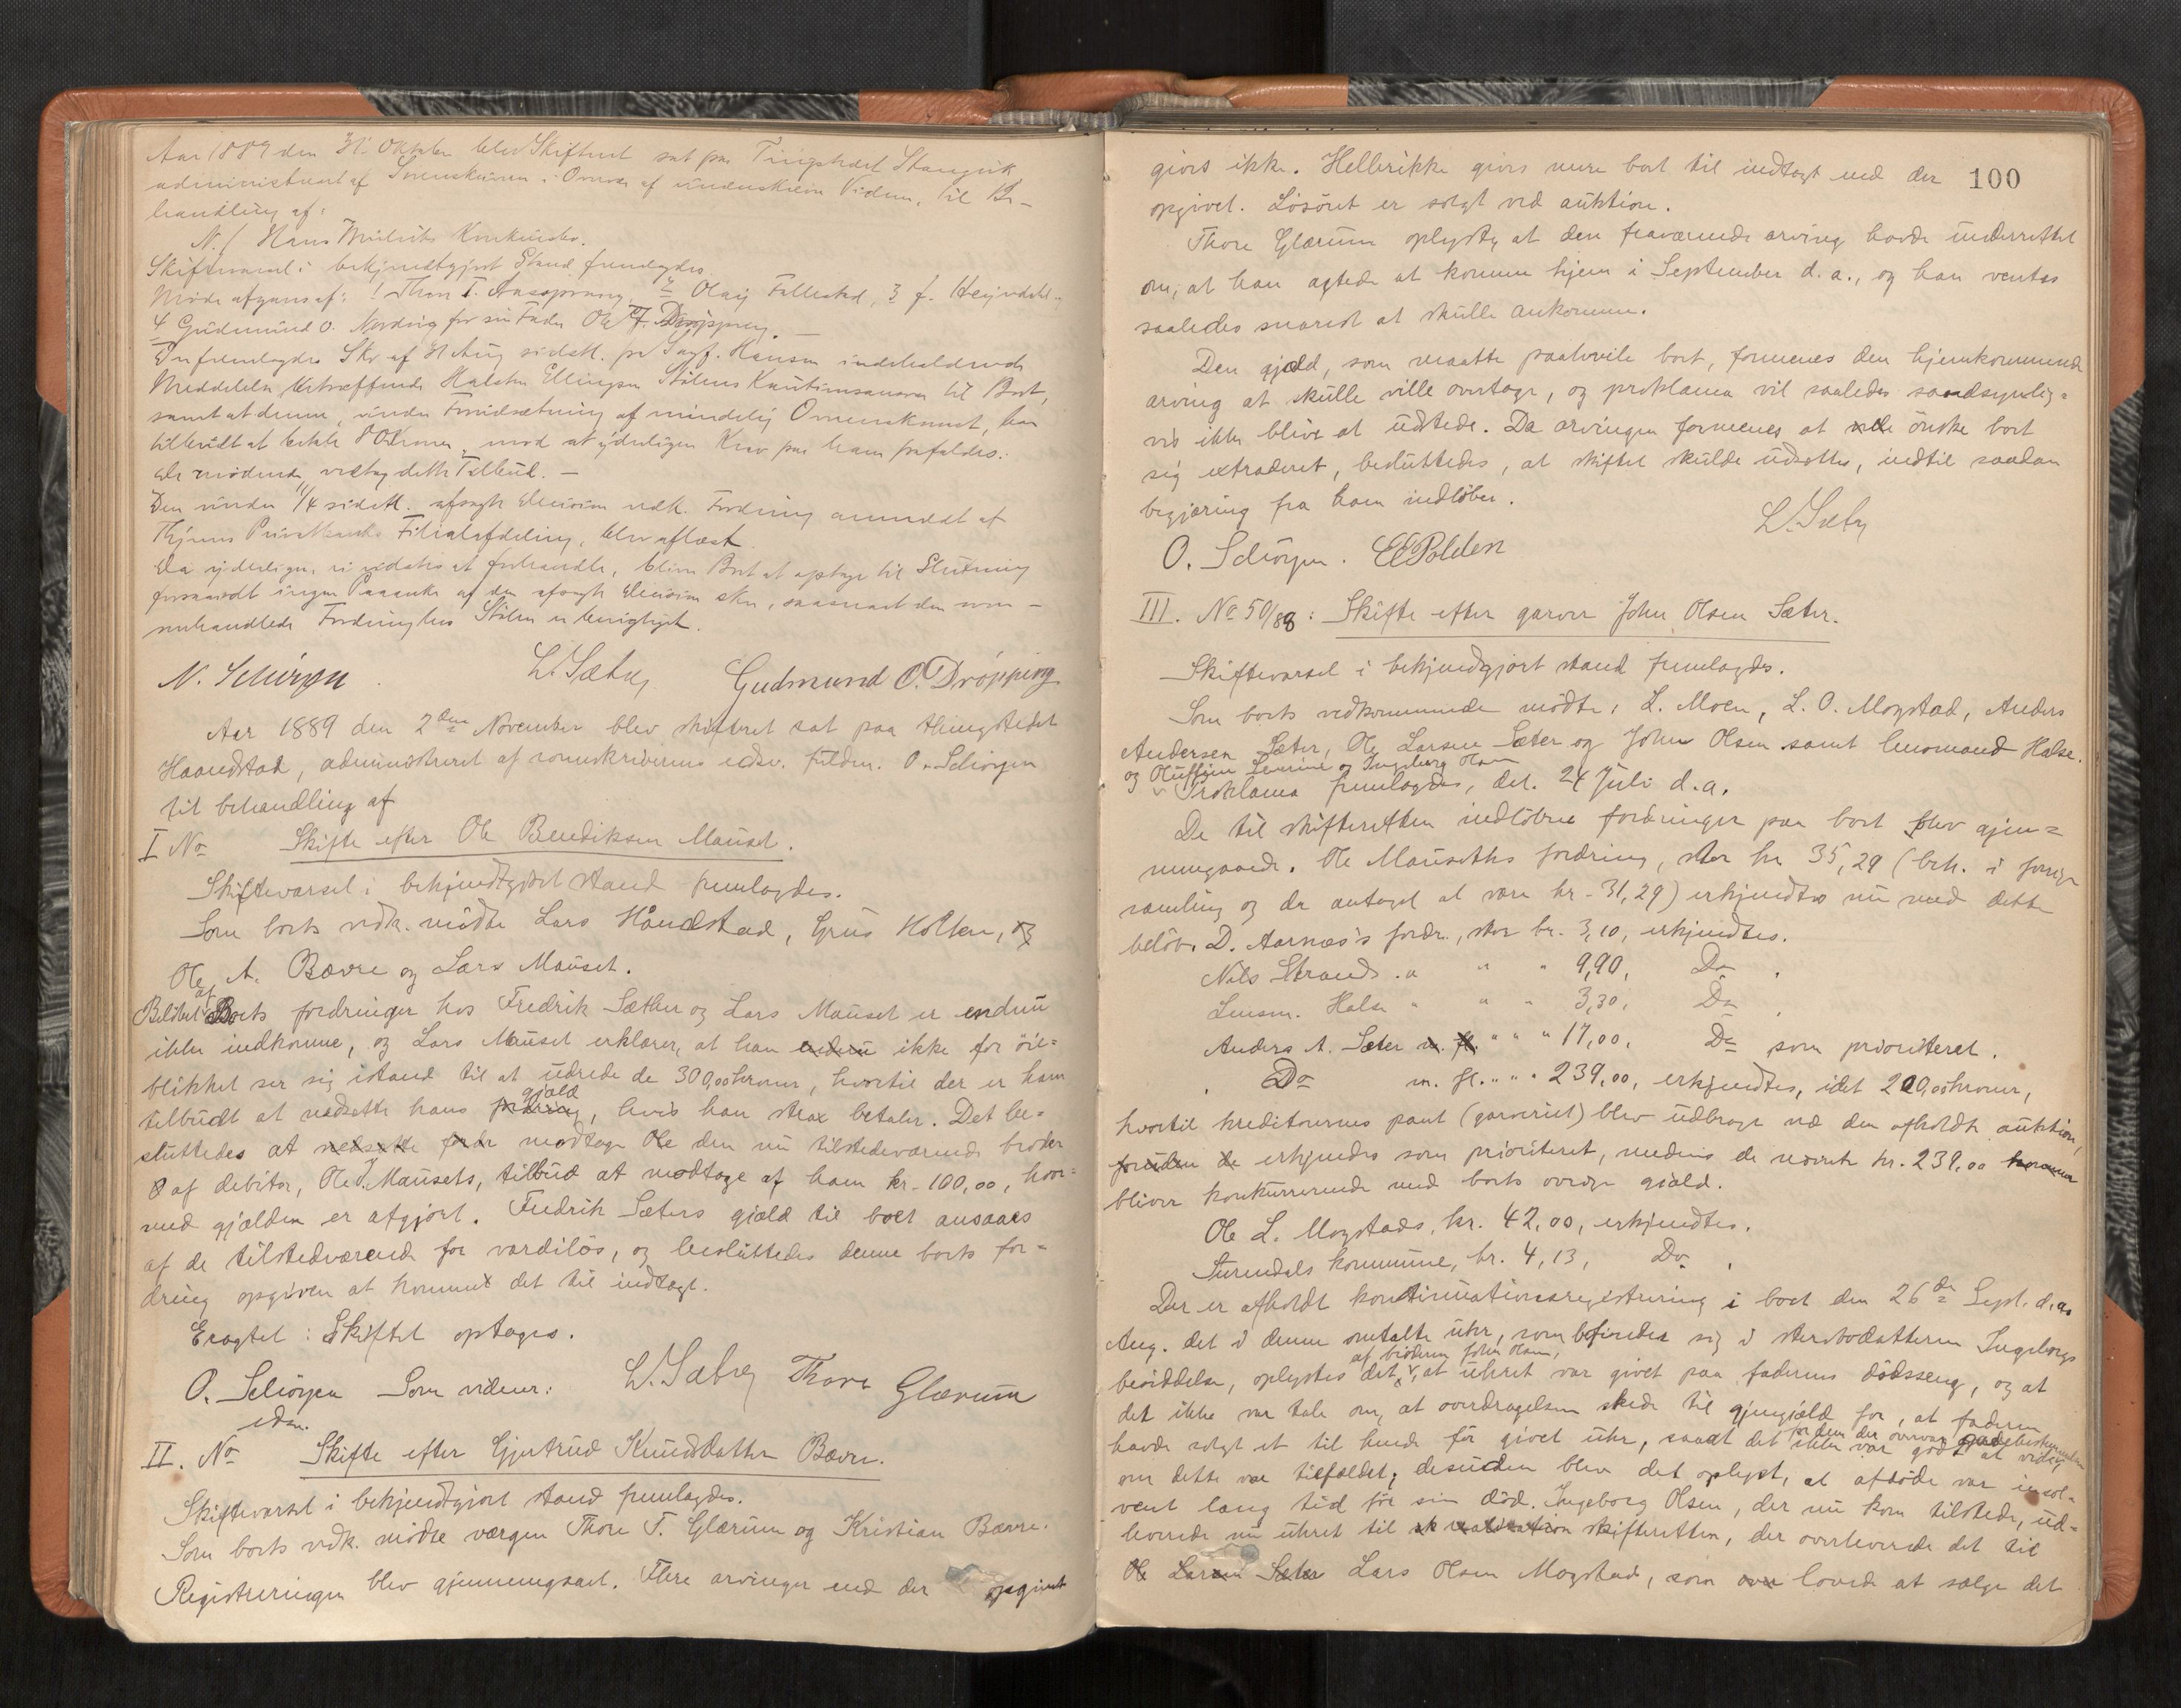 Aar 1889 den 31. Oktober blev Skifteret sat paa Tingstedet Stangvik
administreret af Sorenskriveren i Overvær af underskrevne Vidner, til Be-
handling af:
N. 1 Hans Mieliets Konkursbo.
Skiftevarsel i bekjendtgjort Stand fremlagdes.
Møde afgaves af: 1 Thore T. Aasprang, 2 Olaig Fallestad, 3 f.
4 Gudmund O. Nordvig for sin Fader Ole T. Drøpping. —
Der fremlagdes Skr af 31 Aug sidstl. fra Sagf. Hansen indeholdende
Meddelelse betræffende Halsten Ellingsen Stølens Kautionsansvar til Boet,
samt at denne, under Forudsætning af mindelig Overenskomst, har
tilbudt at betale 80 Kroner mod at yderligere Krav paa ham frafaldes.
De mødende vedtog dette Tilbud. —
Den under 11/4 sidstl. afsagte Decision vedk. Fordring anmeldt af
Thjems Privatbanks Filialafdeling, blev aflæst.
Da yderligere ei vidstes at forhandle, bliver Boet at optage til Slutning
forsaavidt ingen Paaanke af den afsagte Decision sker, saasnart den om-
omhandlede Fordring hos Stølen er berigtiget.
N. Schiörgen L. Sæby Gudmund O. Drøpping
Aar 1889 den 2den November blev skifteret sat paa thingstedet
Haandstad, administreret af sorenskriverens edsv. fuldm. O. Schiörgen
til behandling af
I No Skifte efter Ole Bendiksen Mauset.
Skiftevarsel i bekjendtgjort stand fremlagdes.
Som boets vedk. mödte Lars Håndstad, Grus Holten, og
Ole A. Bævre og Lars Mauset.
Belöbet af Boets fordringer hos Fredrik Sæther og Lars Mauset er endnu
ikke indkomne, og Lars Mauset erklærer, at han endnu ikke for öie-
blikket ser sig istand til at udrede de 300,00 kroner, hvortil der er ham
tilbudt at nedsætte hans fordring gjæld, hvis han strax betaler. Det be-
sluttedes at nedsætte fordr modtage Ole den nu tilstedeværende broder
af debitor, Ole Mausets, tilbud at modtage af ham kr. 100,00, hvor-
med gjælden er afgjort. Fredrik Sæters gjæld til boet ansaaes
af de tilstedværende for værdilös, og besluttedes denne boets for-
dring opgiven at komme det til indtægt.
Eragtet: Skiftet optages.
O. Schiörgen Som vidner: L. Sæby Thore Glærum
edsv.
II. No Skifte efter Gjertrud Knudsdatter Bævre.
Skiftevarsel i bekjendtgjort stand fremlagdes.
Som boets vedk. mödte værgen Thore T. Glærum og Kristian Bævre.
Registreringen blev gjennemgaaet. Flere arvinger end der opgivet
100
gives ikke. Hellerikke gives mere boet til indtægt end der
opgivet. Lösöret er solgt ved auktion.
Thore Glærum oplyste, at den fraværende arving havde underrettet
om, at han agtede at komme hjem i September d. a., og han ventes
saaledes snarest at skulle ankomme.
Den gjæld, som maatte paahvile boet, formenes den hjemkommende
arving at skulle ville overtage, og proklama vil saaledes sandsynlig-
vis ikke blive at udstede. Da arvingen formenes at ville önske boet
sig extraderet, besluttedes, at skiftet skulde udsættes, indtil saadan
begjæring fra ham indlöber.
L. Sæby
O. Schiörgen. E E Polden
III. No 50/88: Skifte efter garver John Olsen Sæter.
Skiftevarsel i bekjendtgjort stand fremlagdes.
Som boets vedkommende mödte: L. Moen, L. O. Mogstad, Anders
Andersen Sæter, Ole Larsen Sæter og John Olsen samt lensmand Halse.
og Oluffine Severine og Ingeborg Olsen
Proklama fremlagdes, dat. 24 Juli d. a.
De til skifteretten indlöbne fordringer paa boet blev gjen-
nemgaaede. Ole Mauseths fordring, stor kr 35,29 (beh. i forrige
samling og da antaget at være kr. 31,29) erkjendtes nu med dette
belöb. D. Aarnæs's fordr., stor kr. 3,10, erkjendtes.
Nils Strands " " " 9,90, Do.
Lensm. Halse " " " 3,30, Do.
Anders A. Sæter m. fl. " " " 17,00, Do som prioriteret.
Do m. fl. " " " 239,00, erkjendtes, idet 200,00 kroner,
hvortil kreditorernes pant (garveriet) blev udbragt ved den afholdte auktion,
foruden de erkjendes som prioriteret, medens de överste kr. 239,00 kroner
bliver konkurrerende med boets övrige gjæld.
Ole L. Mogstads, kr. 42,00, erkjendtes.
Surendals kommune, kr. 4,13, Do.
Der er afholdt kontinuationsregistrering i boet den 26de Sept. d. a.
Ang. det i denne omtalte uhr, som befinder sig i stervbodatteren Ingeborgs
besiddelse, oplystes det af broderen John Olsen, at uhret var givet paa faderens dödsseng, og at
det ikke var tale om, at overdragelsen skede til gjengjæld for, at faderen
havde solgt et til hende för givet uhr, saaat det for dem der overvar ikke var godt at vide,
om dette var tilfældet; desuden blev det oplyst, at afdöde var insol-
vent lang tid för sin död. Ingeborg Olsen, der nu kom tilstede, ud-
leverede nu uhret til skifteretten, der overleverede det til
Ole Larsen Sæter Lars Olsen Mogstad, som lovede at sælge det